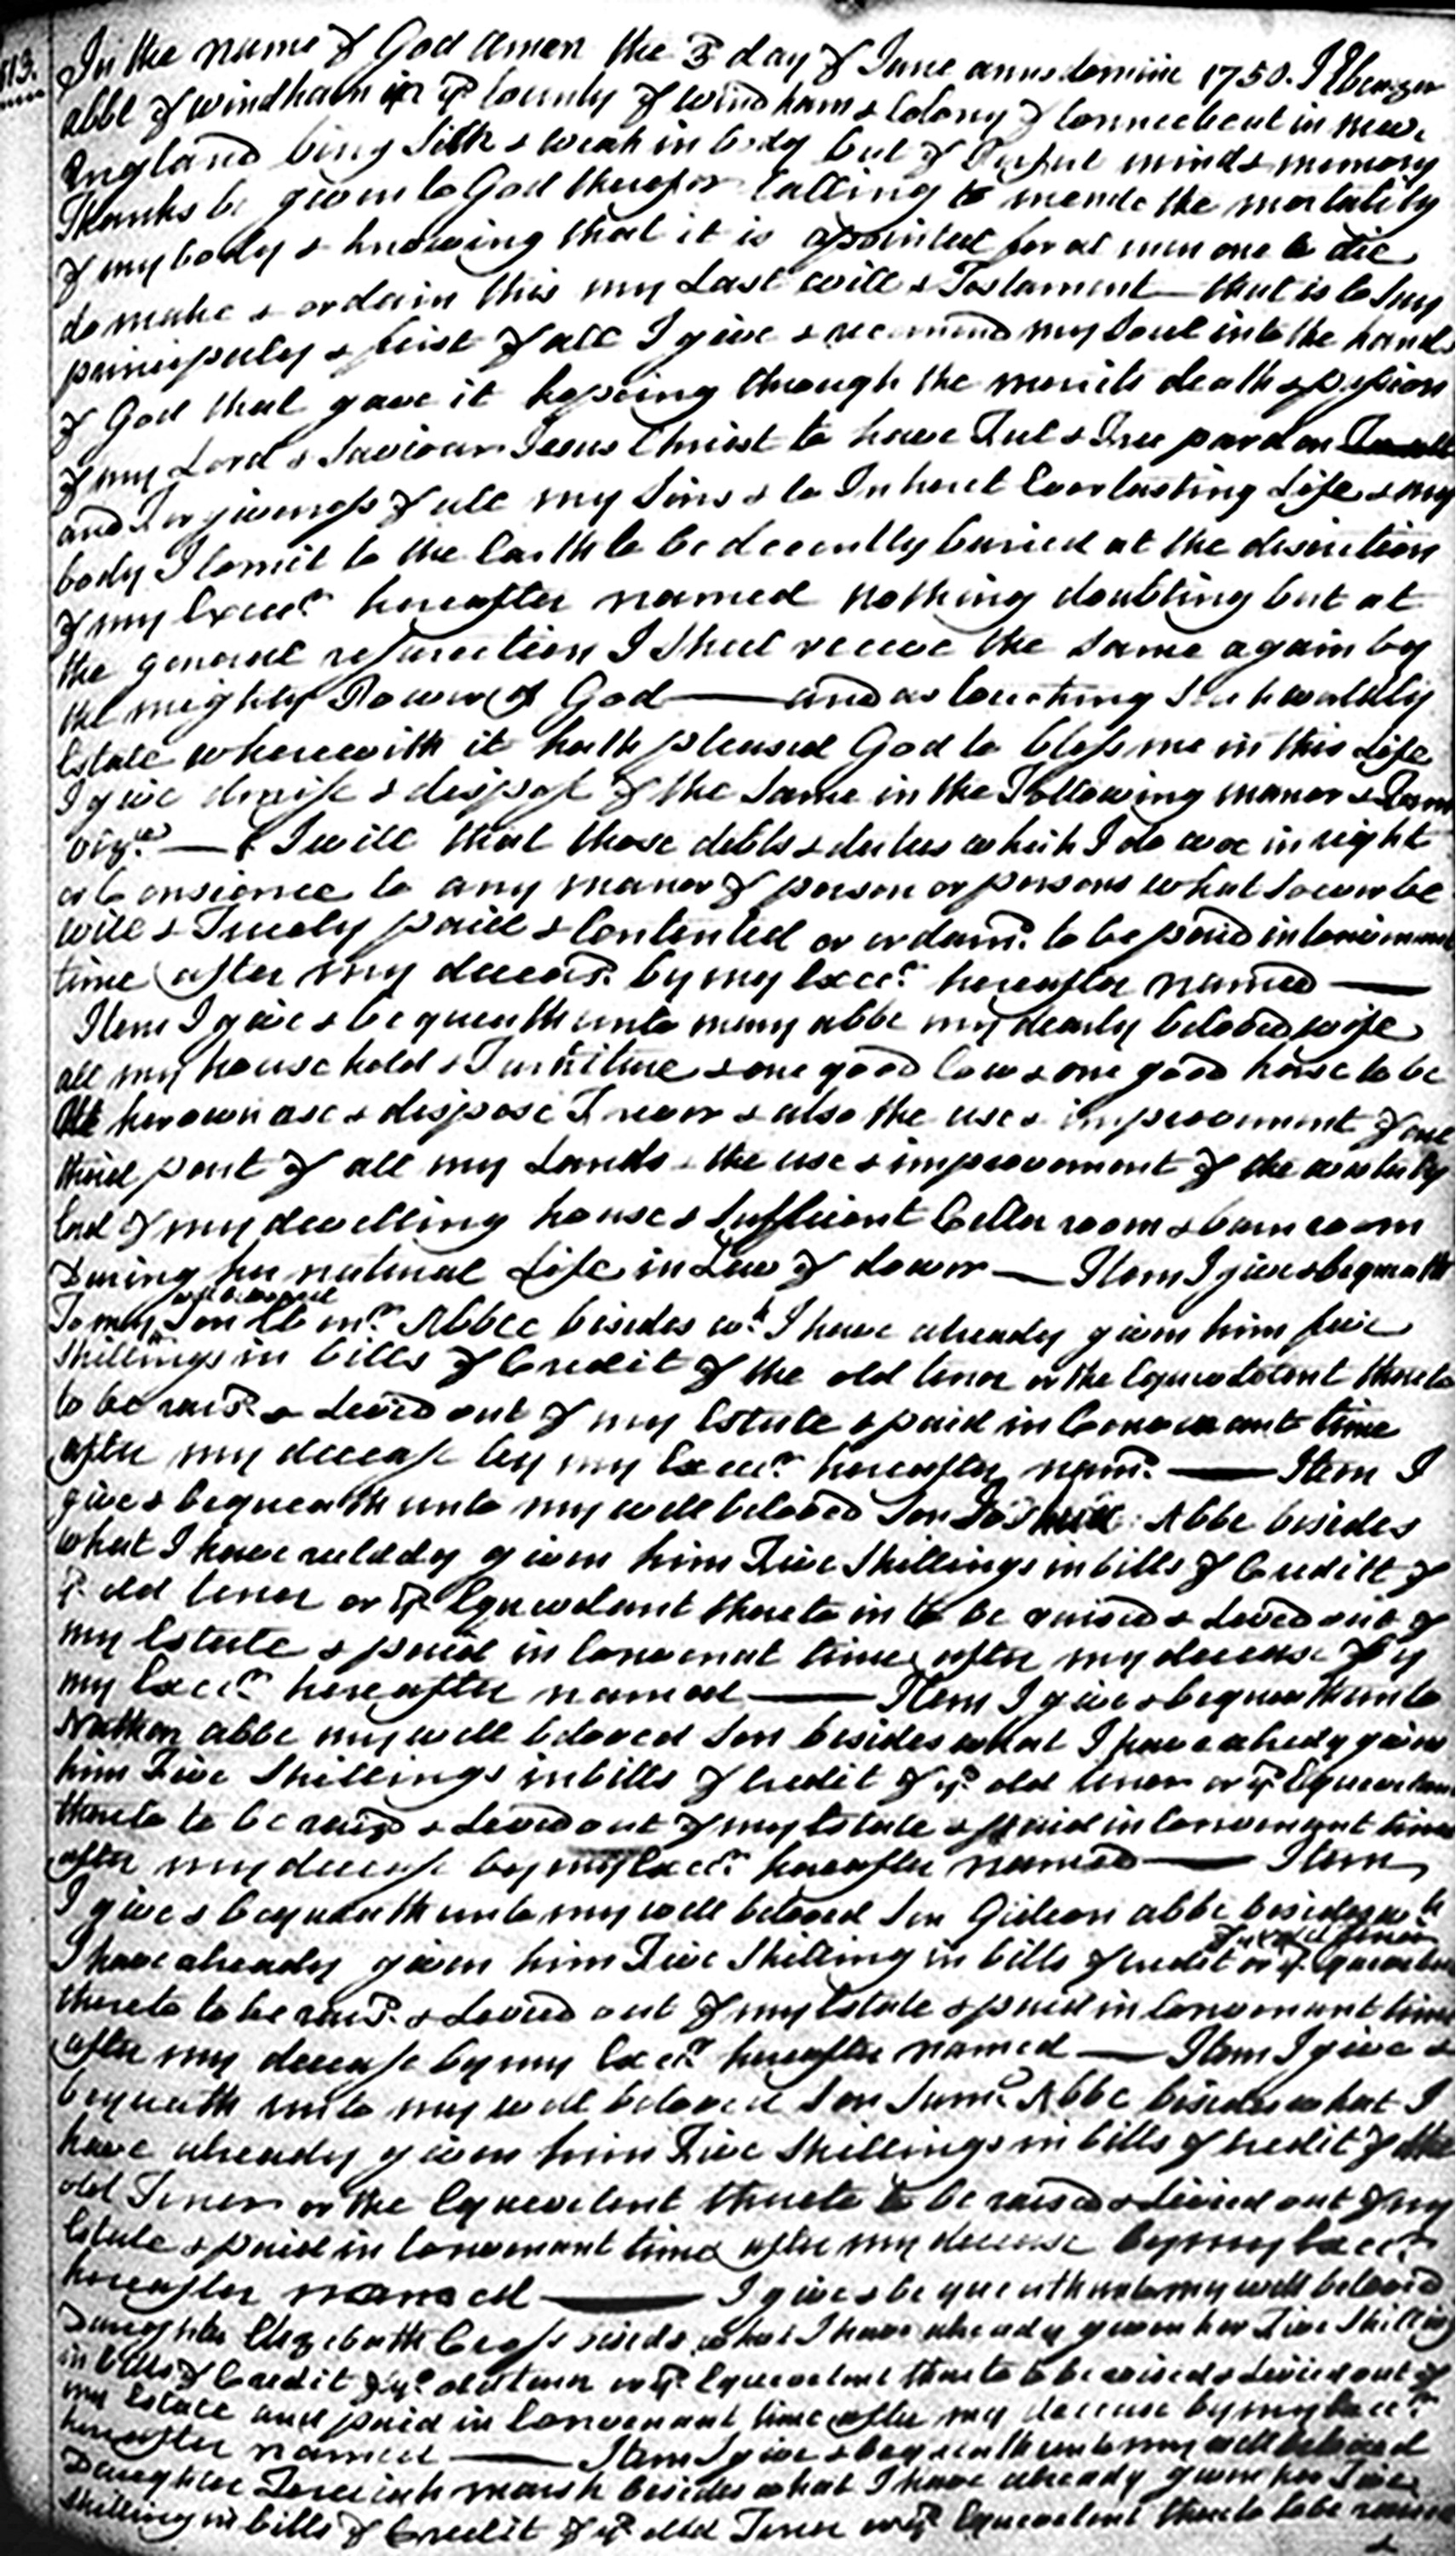 113.
In the name of God amen the 3 day of June anno domine 1750. I Ebenezer
abbe of windham in ye County of windham & Colony of Connecticut in new
England being Sick & weak in body but of Perfect mind & memory
Thanks be given to God therefor Calling to minde the mortality
of my body & knowing that it is apointed for al men one to die
do make & ordain this my Last will & Testament — that is to say
principaly & first of all I give & recomend my Soul into the hands
of God that gave it hopeing through the merits death & passion
of my Lord & Saviour Jesus Christ to have Ful & Free pardon
and Forgiveness of all my Sins & to Inherit Everlasting Life & my
body I Comit to the Earth to be decently buried at the discretion
of my Execrs hereafter named nothing doubting but at
the general resurection I Shul receve the Same again by
the mighty Power of God — and as touching Such worldly
Estate wherewith it hath pleased God to bless me in this Life
I give devise & dispose of the Same in the Following maner & Form
viz — I will that those debts & duties which I do owe in right
or Consience to any maner of person or persons whatsoever be
well & Truely paid & Contented or ordaind to be paid in Convenient
time after my deceas by my Execrs hereafter named —
Item I give & bequeath unto mary abbe my dearly beloved wife
all my household & Furniture & one good Cow & one good horse to be
At her own use & dispose Forever & also the use & improvement of one
third part of all my Lands & the use & improvement of the westerly
End of my dwelling house & Sufficient Celler room & barn room
During her natural Life in Liew of dower — Item I give & bequeath
well beloved
To my Son Ebenr Abbee besides wt I have already given him five
Shillings in bills of Credit of the old tenor or the Equevelent thereto
to be raisd & Levied out of my Estate & paid in Convenant time
after my decease by my Execrs hereafter namd — Item I
give & bequeath unto my well beloved Son Abbe besides
what I have alredy given him Five Shillings in bills of Creditt of
ye old tenor or ye Equevelant thereto in to be raised & Levied out of
my Estate & paid in Convenat time after my decease by
my Execrs hereafter named — Item I give & bequeath unto
Nathan abbe my well beloved Son besides what I have alredy given
him Five Shillings in bills of Credit of ye old tenor or ye Equevelant
thereto to be raisd & Levied out of my Estate & paid in Convenant time
after my decease by my Execrs hereafter named — Item
I give & bequeath unto my well beloved Son Gideon abbe besides wt
of ye old tenor
I have already given him Five Shilling in bills of credit or ye Equevelant
thereto to be raisd & Levied out of my Estate & paid in Convenant time
after my decease by my Execrs hereafter named — Item I give &
bequeath unto my well beloved Son Saml Abbe besides what I
have already given him Five Shillings in bills of Credit of the
old Tenor or the Equevelent thereto to be raised & Levied out of my
Estate & paid in Convenant time after my decease by my Execrs
hereafter named — I give & bequeath unto my well beloved
Daughter Elizebath Cross what I have already given her Five Shilling
in bills of Credit of ye old tenor or ye Equevelent thereto to be raised & Levied out of
my Estate and paid in Convenant time after my decease by my Execrs
hereafter named — Item I give & bequeath unto my well beloved
Daughter marsh besides what I have already given her Five
Shilling in bills of Credit of ye old Tenor or ye Equevelent thereto to be raised
&